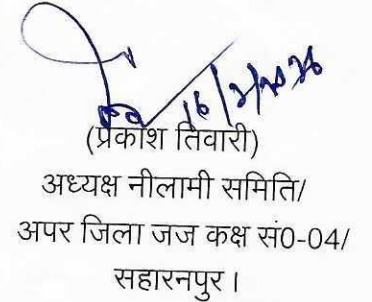 (प्रकाश तिवारी)
अध्यक्ष नीलामी समिति/
अपर जिला जज कक्ष सं0-04/
सहारनपुर।